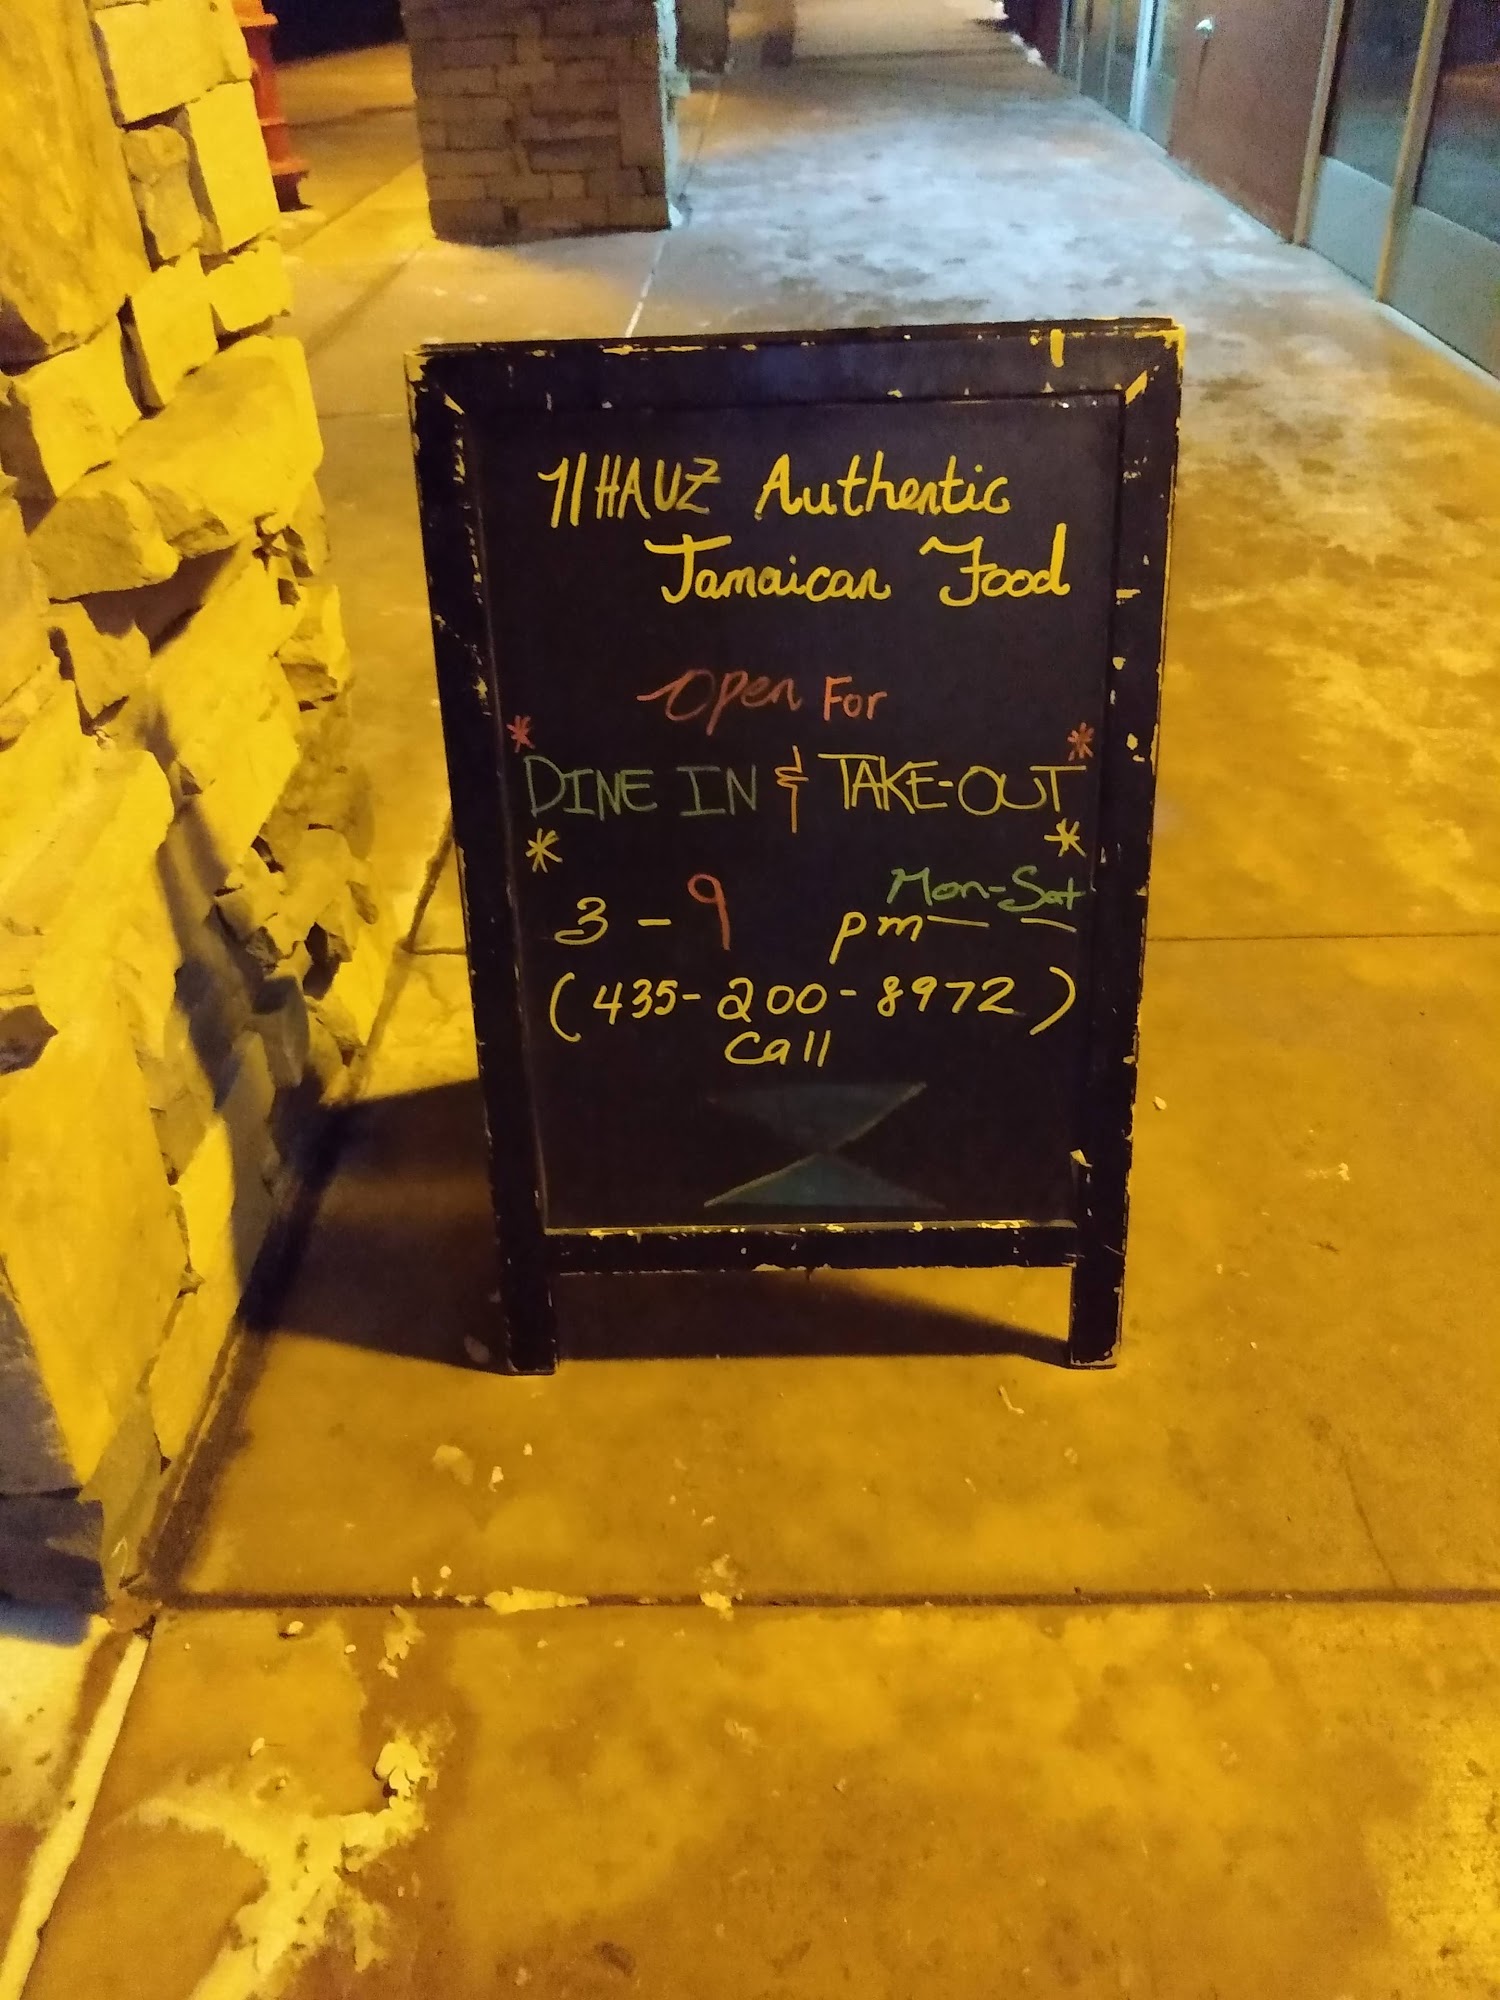 11HAUZ Authentic
Jamaican Food
Open For
* *
DINE IN & TAKE-OUT
* *
Mon-Sat
3 - 9 pm
(435-200-8972)
Call